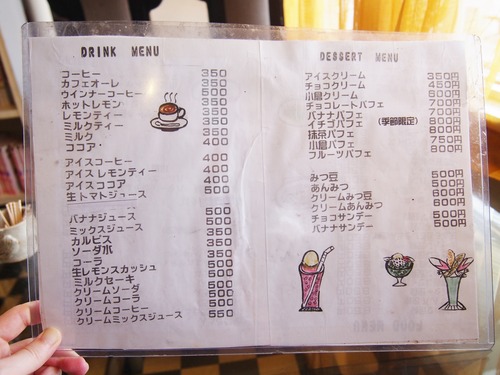 DRINK MENU
コーヒー 350
カフェオーレ 350
ウインナーコーヒー 500
ホットレモン 350
レモンティー 350
ミルクティー 350
ミルク 350
ココア 400
アイスコーヒー 400
アイスレモンティー 400
アイスココア 400
生トマトジュース 500
バナナジュース 500
ミックスジュース 500
カルピス 350
ソーダ水 350
コーラ 350
生レモンスカッシュ 500
ミルクセーキ 500
クリームソーダ 500
クリームコーラ 500
クリームコーヒー 500
クリームミックスジュース 550
DESSERT MENU
アイスクリーム 350円
チョコクリーム 450円
小倉クリーム 600円
チョコレートパフェ 700円
バナナパフェ 700円
イチゴパフェ (季節限定) 800円
抹茶パフェ 800円
小倉パフェ 750円
フルーツパフェ 800円
みつ豆 500円
あんみつ 500円
クリームみつ豆 600円
クリームあんみつ 600円
チョコサンデー 500円
バナナサンデー 500円